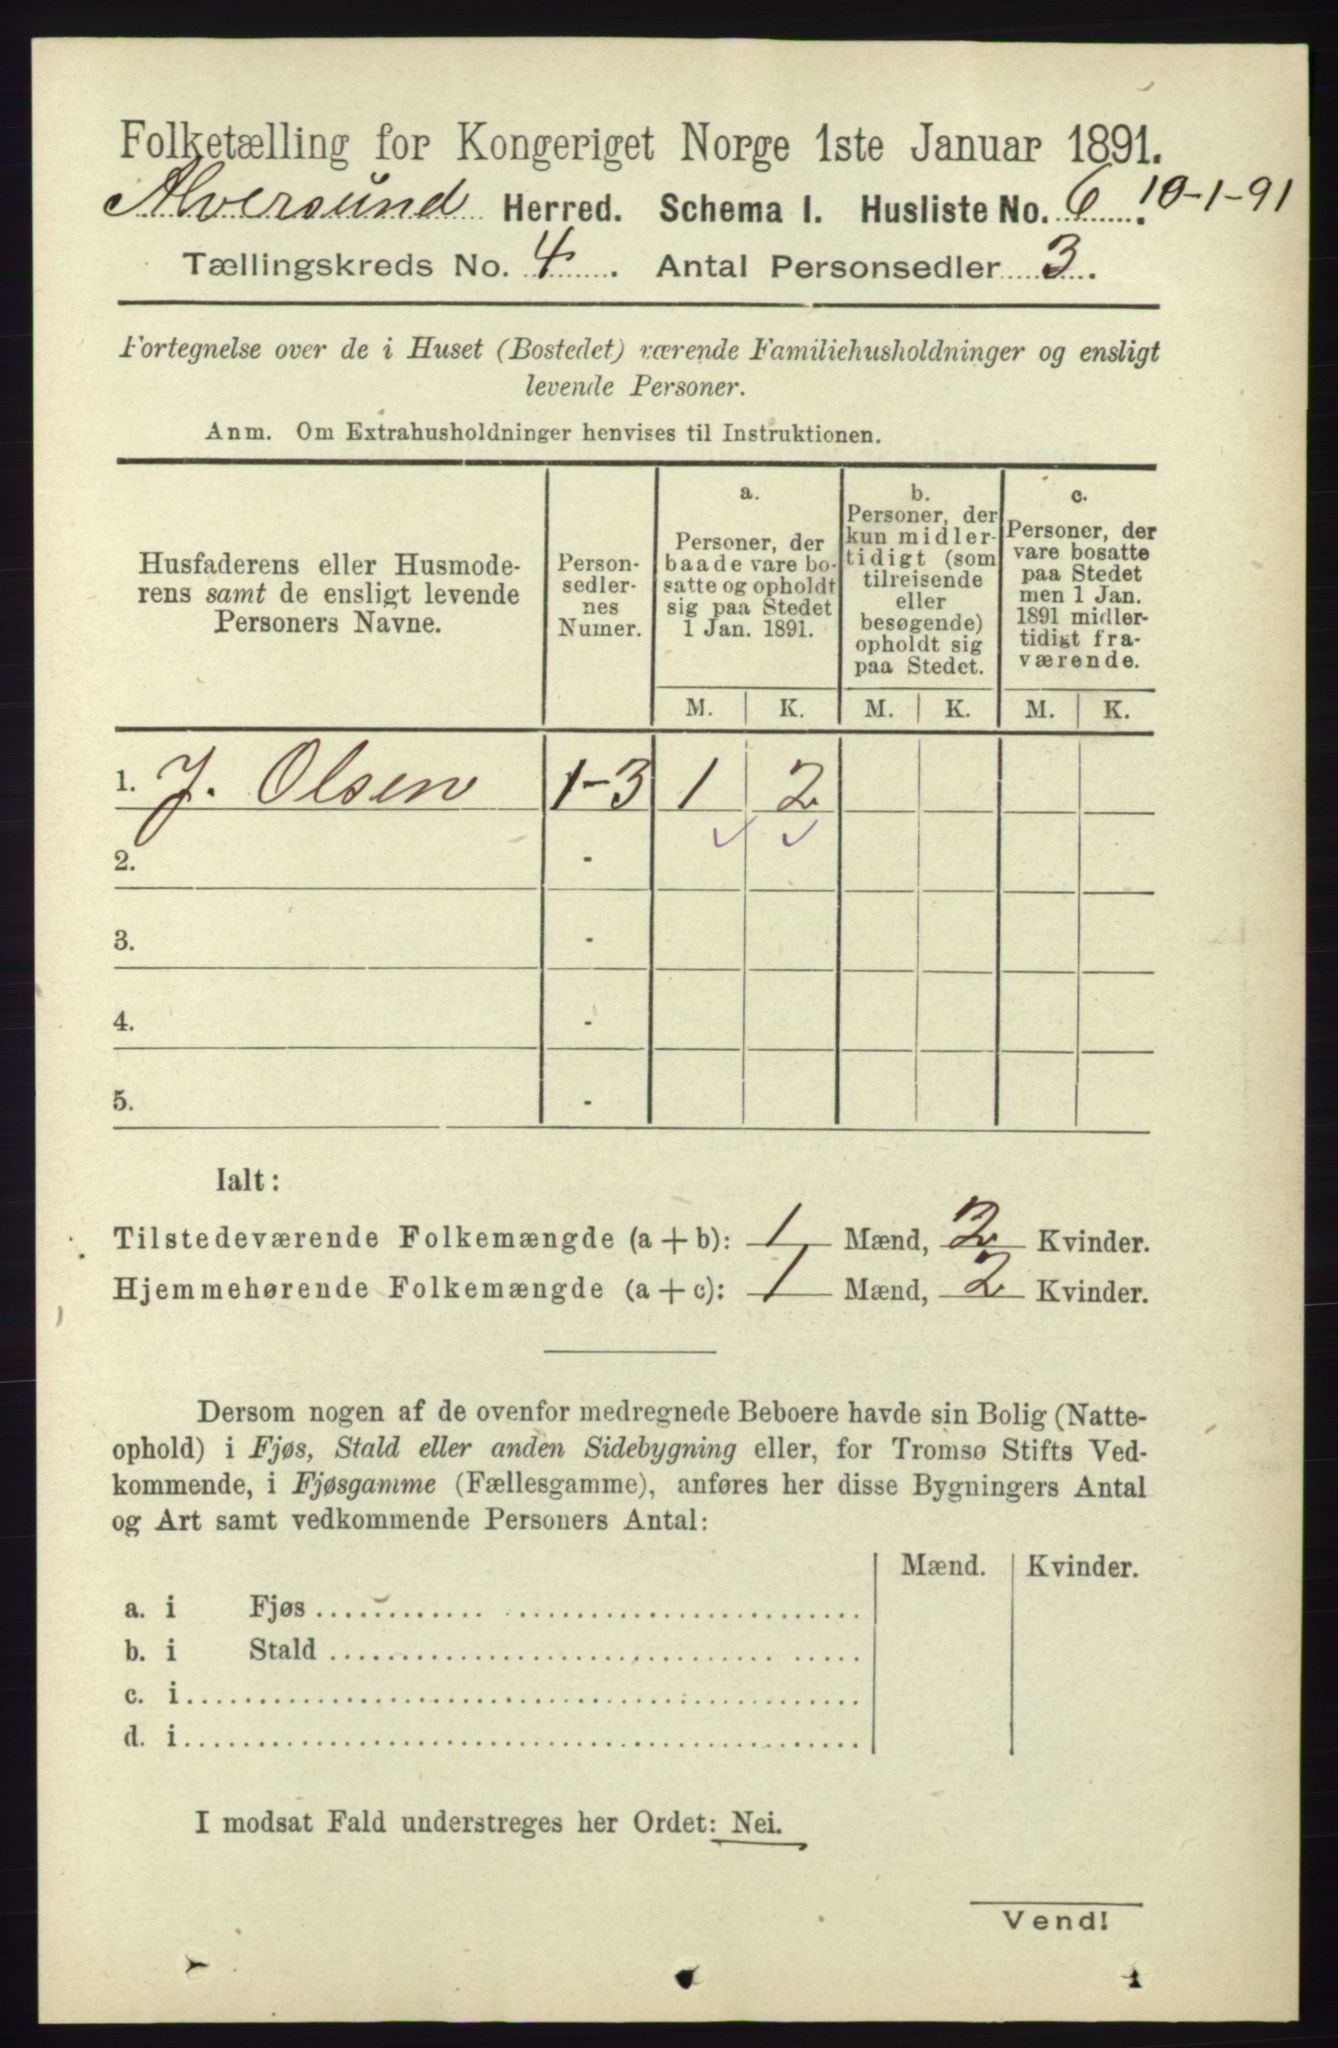 Folketælling for Kongeriget Norge 1ste Januar 1891.
Alversund Herred. Schema I. Husliste No. 6. 10-1-91
Tællingskreds No. 4. Antal Personsedler 3.
Fortegnelse over de i Huset (Bostedet) værende Familiehusholdninger og ensligt
levende Personer.
Anm. Om Extrahusholdninger henvises til Instruktionen.
Husfaderens eller Husmode-
rens samt de ensligt levende
Personers Navne.
Person-
sedler-
nes
Numer.
a.
Personer, der
baade vare bo-
satte og opholdt
sig paa Stedet
1 Jan. 1891.
b.
Personer, der
kun midler-
tidigt (som
tilreisende
eller
besøgende)
opholdt sig
paa Stedet.
c.
Personer, der
vare bosatte
paa Stedet
men 1 Jan.
1891 midler-
tidigt fra-
værende.
M. K. M. K. M. K.
1. J. Olsen 1-3 1 2
2. -
3. -
4. -
5. -
Ialt:
Tilstedeværende Folkemængde (a + b): 1 Mænd, 2 Kvinder.
Hjemmehørende Folkemængde (a + c): 1 Mænd, 2 Kvinder.
Dersom nogen af de ovenfor medregnede Beboere havde sin Bolig (Natte-
ophold) i Fjøs, Stald eller anden Sidebygning eller, for Tromsø Stifts Ved-
kommende, i Fjøsgamme (Fællesgamme), anføres her disse Bygningers Antal
og Art samt vedkommende Personers Antal:
Mænd. Kvinder.
a. i Fjøs
b. i Stald
c. i
d. i
I modsat Fald understreges her Ordet: Nei.
Vend!